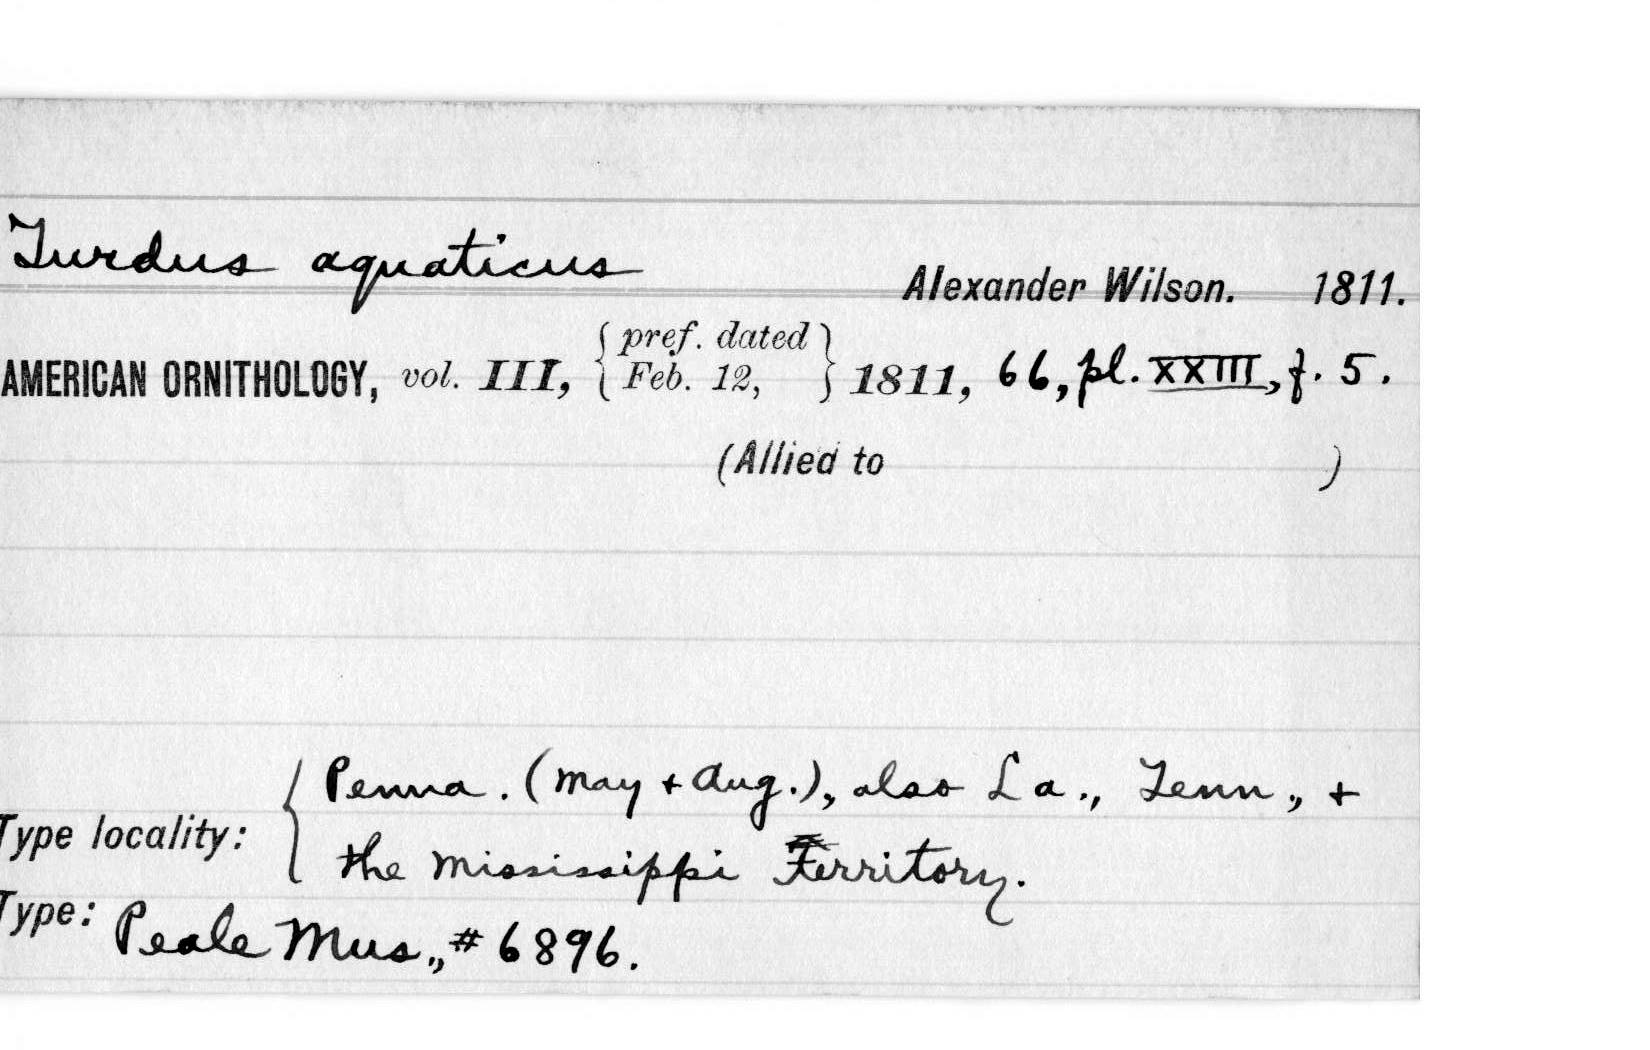 Turdus aquaticus
Alexander Wilson. 1811.
AMERICAN ORNITHOLOGY, vol. III, { pref. dated Feb. 12, } 1811, 66, pl. XXIII, f. 5.
(Allied to )
Type locality: { Penna. (May + Aug.), also La., Tenn., +
the Mississippi Territory.
Type: Peale Mus., # 6896.